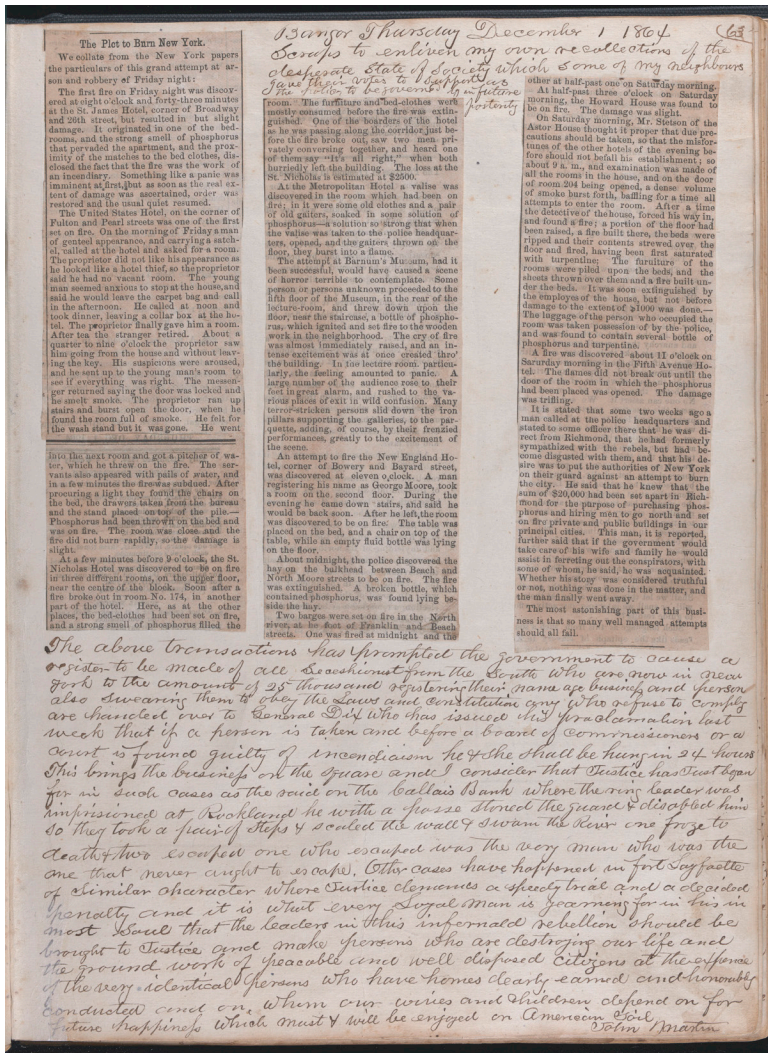 Bangor Thursday December 1 1864
(63
Scraps to enliven my own recollections of the
desperate State of Society which some of my neighbours
gave their votes to support as
the policy to be governed by in future
posterity
The Plot to Burn New York.
We collate from the New York papers
the particulars of this grand attempt at ar-
son and robbery of Friday night:
The first fire on Friday night was discov-
ered at eight o'clock and forty-three minutes
at the St. James Hotel, corner of Broadway
and 26th street, but resulted in but slight
damage. It originated in one of the bed-
rooms, and the strong smell of phosphorus
that pervaded the apartment, and the prox-
imity of the matches to the bed clothes, dis-
closed the fact that the fire was the work of
an incendiary. Something like a panic was
imminent at first, but as soon as the real ex-
tent of damage was ascertained, order was
restored and the usual quiet resumed.
The United States Hotel, on the corner of
Fulton and Pearl streets was one of the first
set on fire. On the morning of Friday a man
of genteel appearance, and carrying a satch-
el, called at the hotel and asked for a room.
The proprietor did not like his appearance as
he looked like a hotel thief, so the proprietor
said he had no vacant room. The young
man seemed anxious to stop at the house, and
said he would leave the carpet bag and call
in the afternoon. He called at noon and
took dinner, leaving a collar box at the ho-
tel. The proprietor finally gave him a room.
After tea the stranger retired. About a
quarter to nine o'clock the proprietor saw
him going from the house and without leav-
ing the key. His suspicions were aroused,
and he sent up to the young man's room to
see if everything was right. The messen-
ger returned saying the door was locked and
he smelt smoke. The proprietor ran up
stairs and burst open the door, when he
found the room full of smoke. He felt for
the wash stand but it was gone. He went
into the next room and got a pitcher of wa-
ter, which he threw on the fire. The ser-
vants also appeared with pails of water, and
in a few minutes the fire was subdued. After
procuring a light they found the chairs on
the bed, the drawers taken from the bureau
and the stand placed on top of the pile.—
Phosphorus had been thrown on the bed and
was on fire. The room was close and the
fire did not burn rapidly, so the damage is
slight.
At a few minutes before 9 o'clock, the St.
Nicholas Hotel was discovered to be on fire
in three different rooms, on the upper floor,
near the centre of the block. Soon after a
fire broke out in room No. 174, in another
part of the hotel. Here, as at the other
places, the bed-clothes had been set on fire,
and a strong smell of phosphorus filled the
room. The furniture and bed-clothes were
mostly consumed before the fire was extin-
guished. One of the boarders of the hotel
as he was passing along the corridor just be-
fore the fire broke out, saw two men pri-
vately conversing together, and heard one
of them say "It's all right," when both
hurriedly left the building. The loss at the
St. Nicholas is estimated at $2500.
At the Metropolitan Hotel a valise was
discovered in the room which had been on
fire; in it were some old clothes and a pair
of old gaiters, soaked in some solution of
phosphorus—a solution so strong that when
the valise was taken to the police headquar-
ters, opened, and the gaiters thrown on the
floor, they burst into a flame.
The attempt at Barnum's Museum, had it
been successful, would have caused a scene
of horror terrible to contemplate. Some
person or persons unknown proceeded to the
fifth floor of the Museum, in the rear of the
lecture-room, and threw down upon the
floor, near the staircase, a bottle of phospho-
rus, which ignited and set fire to the wooden
work in the neighborhood. The cry of fire
was almost immediately raised, and an in-
tense excitement was at once created thro'
the building. In the lecture room, particu-
larly, the feeling amounted to panic. A
large number of the audience rose to their
feet in great alarm, and rushed to the va-
rious places of exit in wild confusion. Many
terror-stricken persons slid down the iron
pillars supporting the galleries, to the par-
quette, adding, of course, by their frenzied
performances, greatly to the excitement of
the scene.
An attempt to fire the New England Ho-
tel, corner of Bowery and Bayard street,
was discovered at eleven o'clock. A man
registering his name as George Moore, took
a room on the second floor. During the
evening he came down stairs, and said he
would be back soon. After he left, the room
was discovered to be on fire. The table was
placed on the bed, and a chair on top of the
table, while an empty fluid bottle was lying
on the floor.
About midnight, the police discovered fire
the hay on the bulkhead between Beach and
North Moore streets to be on fire. The fire
was extinguished. A broken bottle, which
contained phosphorus, was found lying be-
side the hay.
Two barges were set on fire in the North
river, at the foot of Franklin and Beach
streets. One was fired at midnight and the
other at half-past one on Saturday morning.
At half-past three o'clock on Saturday
morning, the Howard House was found to
be on fire. The damage was slight.
On Saturday morning, Mr. Stetson of the
Astor House thought it proper that due pre-
cautions should be taken, so that the misfor-
tunes of the other hotels of the evening be-
fore should not befall his establishment; so
about 9 a. m., and examination was made of
all the rooms in the house, and on the door
of room 204 being opened, a dense volume
of smoke burst forth, baffling for a time all
attempts to enter the room. After a time
the detective of the house, forced his way in,
and found a fire; a portion of the floor had
been raised, a fire built there, the beds were
ripped and their contents strewed over the
floor and fired, having been first saturated
with turpentine; The furniture of the
rooms were piled upon the beds, and the
sheets thrown over them and a fire built un-
der the beds. It was soon extinguished by
the employes of the house, but not before
damage to the extent of $1000 was done.—
The luggage of the person who occupied the
room was taken possession of by the police,
and was found to contain several bottle of
phosphorus and turpentine.
A fire was discovered about 11 o'clock on
Saturday morning in the Fifth Avenue Ho-
tel. The flames did not break out until the
door of the room in which the phosphorus
had been placed was opened. The damage
was trifling.
It is stated that some two weeks ago a
man called at the police headquarters and
stated to some officer there that he was di-
rect from Richmond, that he had formerly
sympathized with the rebels, but had be-
come disgusted with them, and that his de-
sire was to put the authorities of New York
on their guard against an attempt to burn
the city. He said that he knew that the
sum of $20,000 had been set apart in Rich-
mond for the purpose of purchasing phos-
phorus and hiring men to go north and set
on fire private and public buildings in our
principal cities. This man, it is reported,
further said that if the government would
take care of his wife and family he would
assist in ferreting out the conspirators, with
some of whom, he said, he was acquainted.
Whether his story was considered truthful
or not, nothing was done in the matter, and
the man finally went away.
The most astonishing part of this busi-
ness is that so many well managed attempts
should all fail.
The above transactions has prompted the government to cause a
register to be made of all Seceshionist from the South who are now in new
york to the amount of 25 thousand registering their name age business and person
also swearing them to obey the Laws and constitution any who refuse to comply
are handed over to General Dix who has issued his proclamation last
week that if a person is taken and before a board of commissioners or a
court is found guilty of incendiaism he & she shall be hung in 24 hours
This brings the business on the square and I consider that Justice has Just began
for in such cases as the raid on the Callais Bank where the ring leader was
imprisioned at Rockland he with a posse stoned the guard & disabled him
so they took a pair of steps & scaled the wall & swam the River one froze to
death & two escaped one who escaped was the very man who was the
one that never aught to escape. Other cases have happened in fort Layfaette
of Similar character where Justice demands a speedy trial and a decided
penalty and it is what every Loyal man is yearning for in his in
most Soul that the leaders in this infernald rebellion should be
brought to Justice and make persons who are destroying our life and
the ground work of peacable and well disposed citizens at the expence
of the very identical persons who have homes dearly earned and honorably
conducted and on whom our wives and children depend on for
future happiness which must & will be enjoyed on American Soil
John Martin